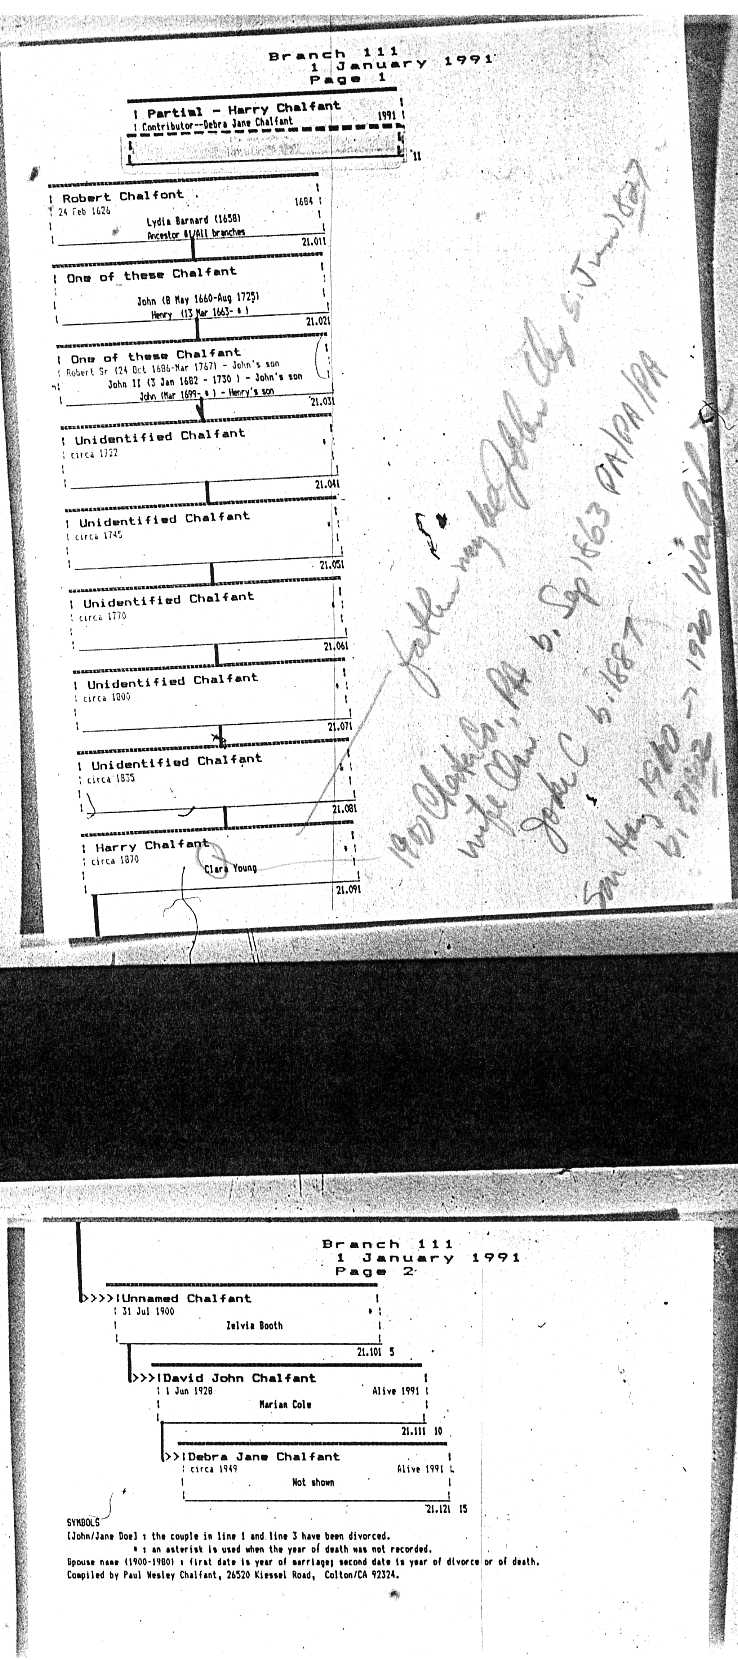 Branch 111
1 January 1991
Page 1
Partial - Harry Chalfant
Contributor--Debra Jane Chalfant 1991
11
Robert Chalfont
24 Feb 1626 1684
Lydia Barnard (1658)
Ancestor All branches
21.011
One of these Chalfant
John (8 May 1660-Aug 1725)
Henry (13 Mar 1663- * )
21.021
One of these Chalfant
Robert Sr (24 Oct 1686-Mar 1767) - John's son
John II (3 Jan 1682 - 1730 ) - John's son
John (Mar 1699- * ) - Henry's son
21.031
Unidentified Chalfant
circa 1722 *
21.041
Unidentified Chalfant
circa 1745 *
21.051
Unidentified Chalfant
circa 1770 *
21.061
Unidentified Chalfant
circa 1800 *
21.071
Unidentified Chalfant
circa 1835 *
21.081
Harry Chalfant
circa 1870 *
Clara Young
21.091
father may be
Jun 1827
1900 Chester Co., PA b. Sep 1863 PA/PA/PA
wife
John C b. 1887
Son Harry 1900 -> 1920
b.
Branch 111
1 January 1991
Page 2
>>>>Unnamed Chalfant
31 Jul 1900 *
Zelvia Booth
21.101 5
>>>David John Chalfant
1 Jun 1928 Alive 1991
Marian Cole
21.111 10
>>Debra Jane Chalfant
circa 1949 Alive 1991
Not shown
21.121 15
SYMBOLS
[John/Jane Doe] : the couple in line 1 and line 3 have been divorced.
* : an asterisk is used when the year of death was not recorded.
Spouse name (1900-1980) : first date is year of marriage; second date is year of divorce or of death.
Compiled by Paul Wesley Chalfant, 26520 Kiessel Road, Colton/CA 92324.